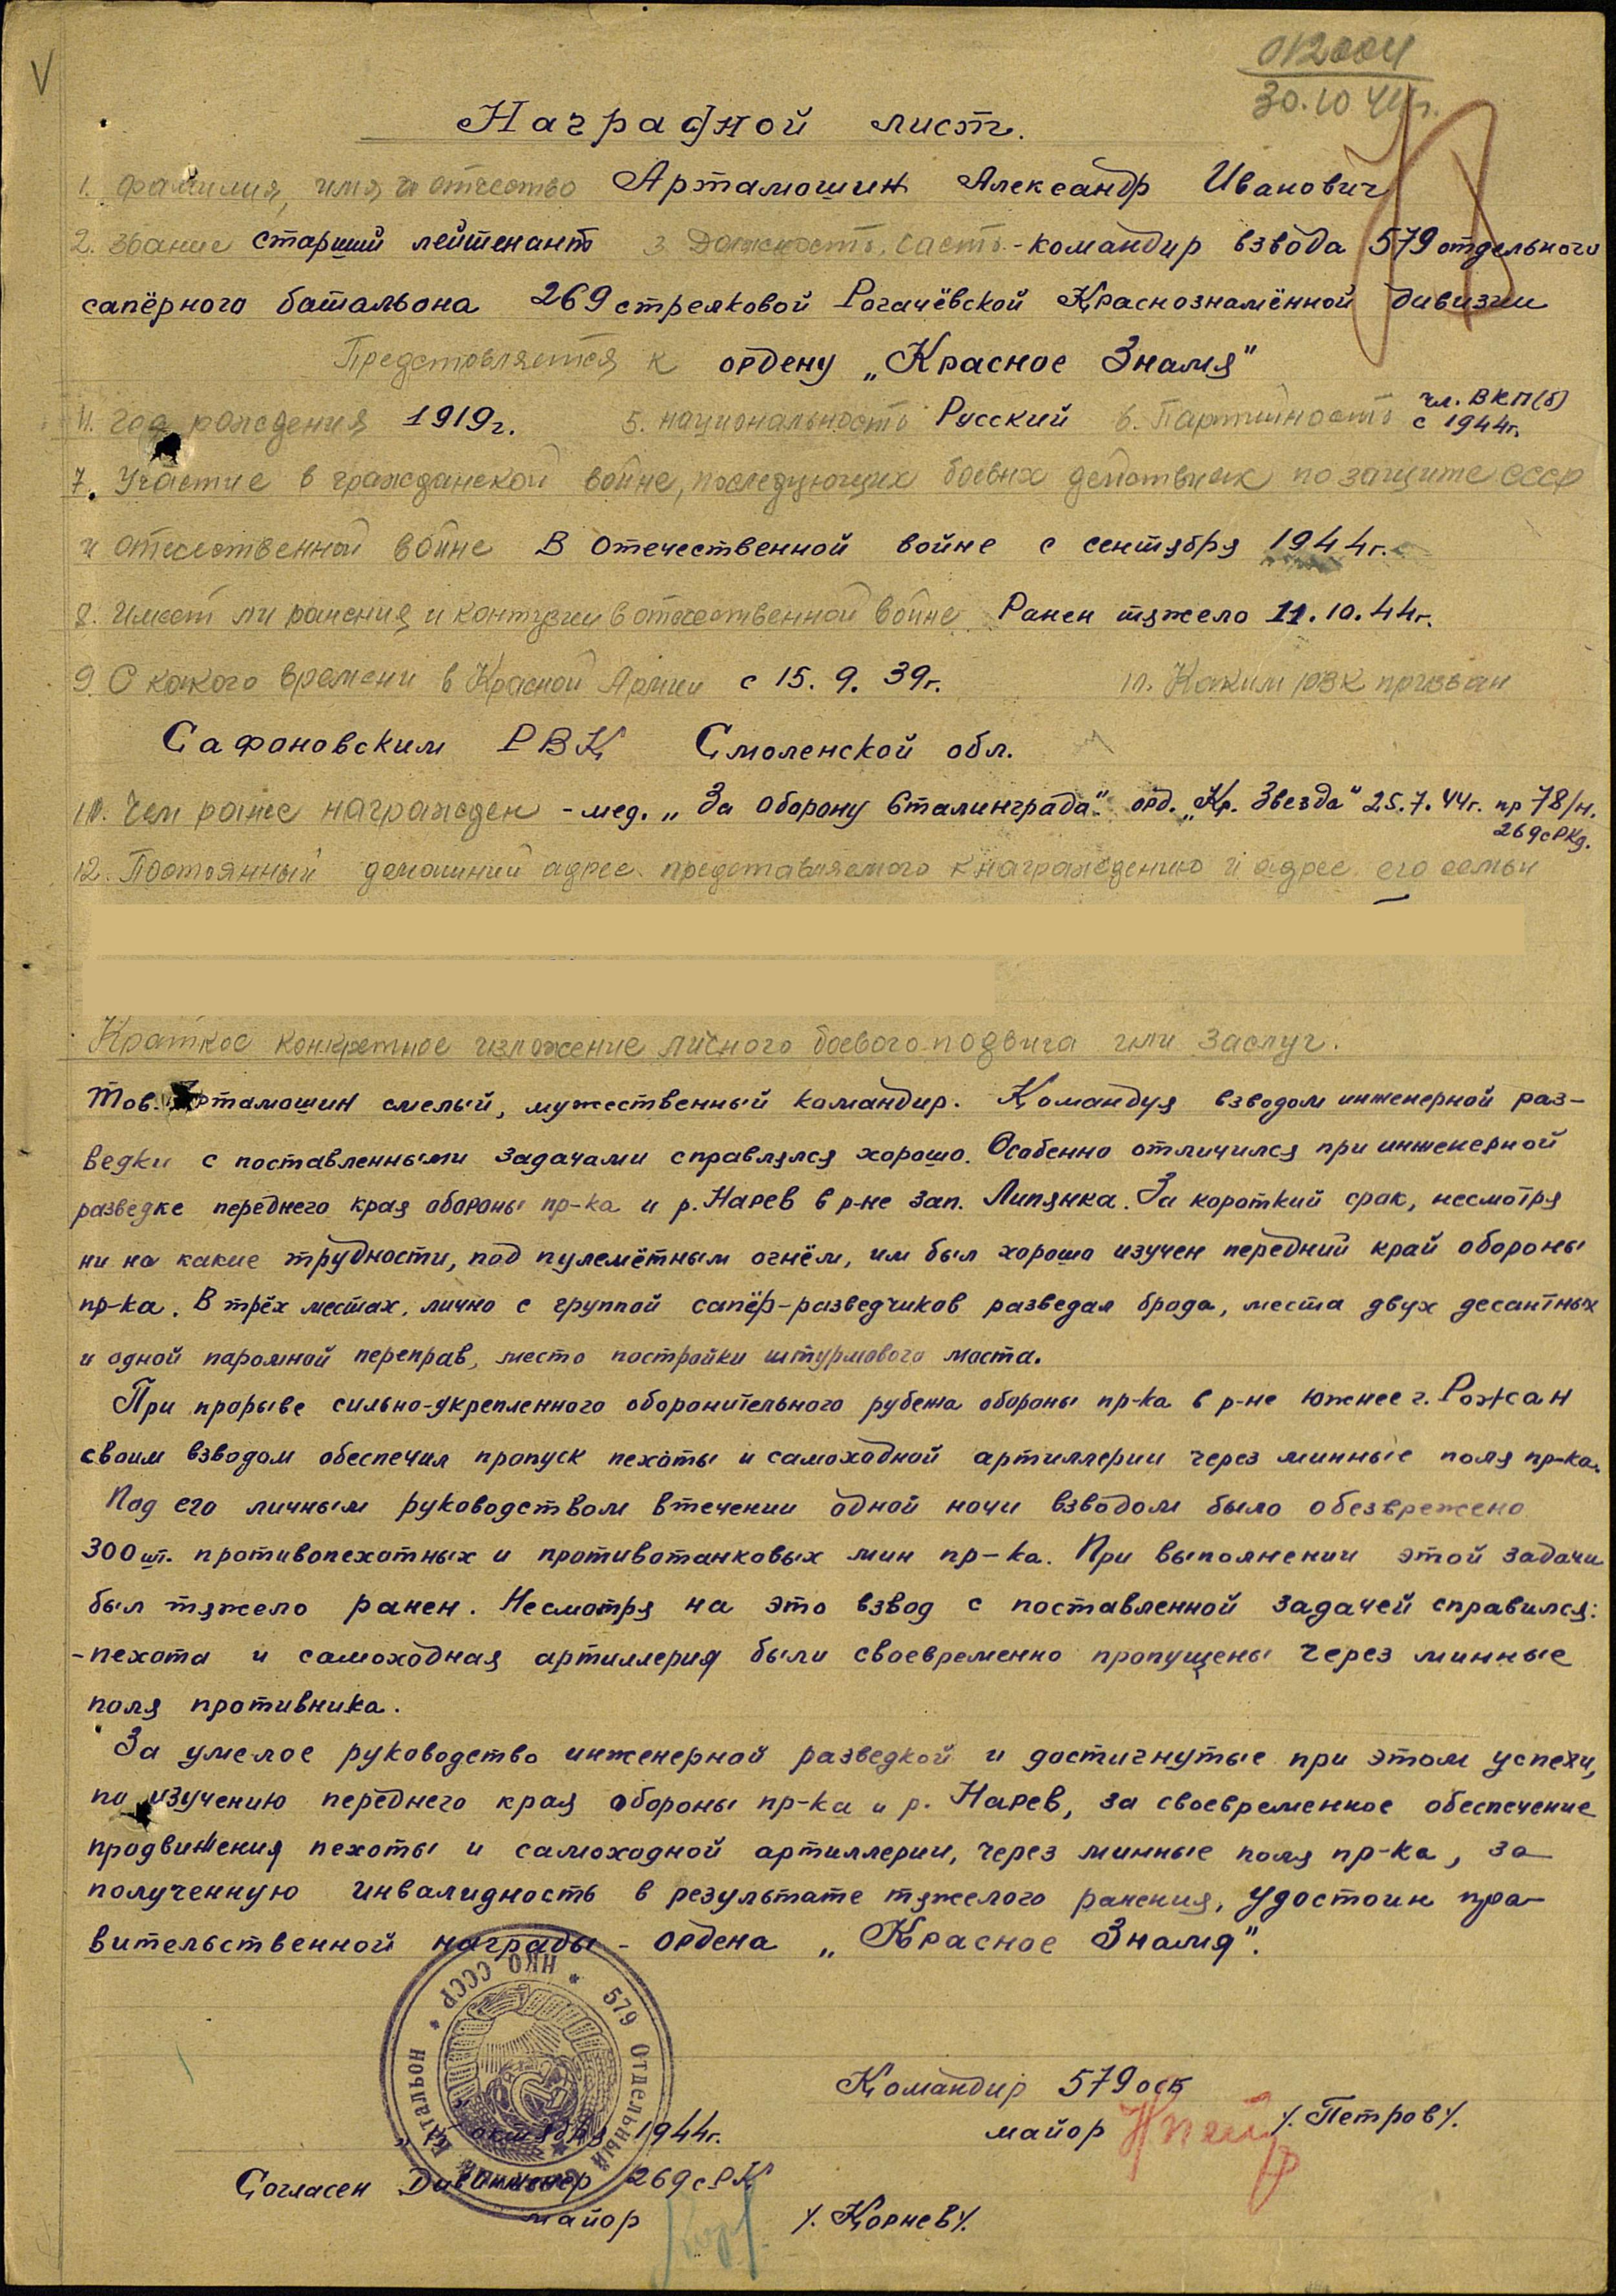 012004
30.10 44г.
V
Наградной лист.
1. фамилия, имя и отчество Артамошин Александр Иванович
2. Звание старший лейтенант 3. Должность, часть - командир взвода 579 отдельного
сапёрного батальона 269 стрелковой Рогачёвской Краснознамённой дивизии
Представляется к ордену „Красное Знамя"
4. год рождения 1919г. 5. национальность Русский 6. Партийность чл. ВКП(б)
с 1944г.
7. Участие в гражданской войне, последующих боевых действиях по защите СССР
и отечественной войне В Отечественной войне с сентября 1944г.
8. Имеет ли ранения и контузии в отечественной войне Ранен тяжело 11.10.44г.
9. С какого времени в Красной Армии с 15.9.39г. 10. Каким РВК призван
Сафоновским РВК Смоленской обл.
10. Чем ранее награжден - мед. „За оборону Сталинграда". орд. „Кр. Звезда" 25.7.44г. пр 78/н.
269сРКд.
12. Постоянный домашний адрес представляемого к награждению и адрес его семьи
Краткое конкретное изложение личного боевого подвига или заслуг.
Тов. Артамошин смелый, мужественный командир. Командуя взводом инженерной раз-
ведки с поставленными задачами справлялся хорошо. Особенно отличился при инженерной
разведке переднего края обороны пр-ка и р. Нарев в р-не зап. Липянка. За короткий срок, несмотря
ни на какие трудности, под пулемётным огнём, им был хорошо изучен передний край обороны
пр-ка. В трёх местах, лично с группой сапёр-разведчиков разведал брода, места двух десантных
и одной паромной переправ, место постройки штурмового моста.
При прорыве сильно-укрепленного оборонительного рубежа обороны пр-ка в р-не южнее г. Рожан
своим взводом обеспечил пропуск пехоты и самоходной артиллерии через минные поля пр-ка.
Под его личным руководством втечении одной ночи взводом было обезврежено
300 шт. противопехотных и противотанковых мин пр-ка. При выполнении этой задачи
был тяжело ранен. Несмотря на это взвод с поставленной задачей справился:
-пехота и самоходная артиллерия были своевременно пропущены через минные
поля противника.
За умелое руководство инженерной разведкой и достигнутые при этом успехи,
по изучению переднего края обороны пр-ка и р. Нарев, за своевременное обеспечение
продвижения пехоты и самоходной артиллерии, через минные поля пр-ка, за
полученную инвалидность в результате тяжелого ранения, удостоин пра-
вительственной награды - ордена „Красное Знамя".
НКО СССР * 579 Отдельный Саперный Батальон *
Командир 579 осб
майор /. Петров /.
„ " октября 1944г.
Согласен Дивинженер 269сРК
майор /. Корнев /.